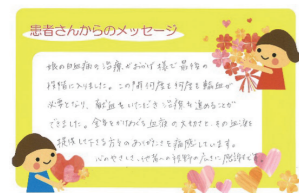 患者さんからのメッセージ
娘の白血病の治療がおかげ様で最後の
段階に入りました。この間何度も何度も輸血が
必要となり、献血をいただき治療を進めることが
できました。全身をかけめぐる血液の大切さと、その血液を
提供して下さる方々のありがたさを痛感しています。
心のやさしい、他者への
感謝です。